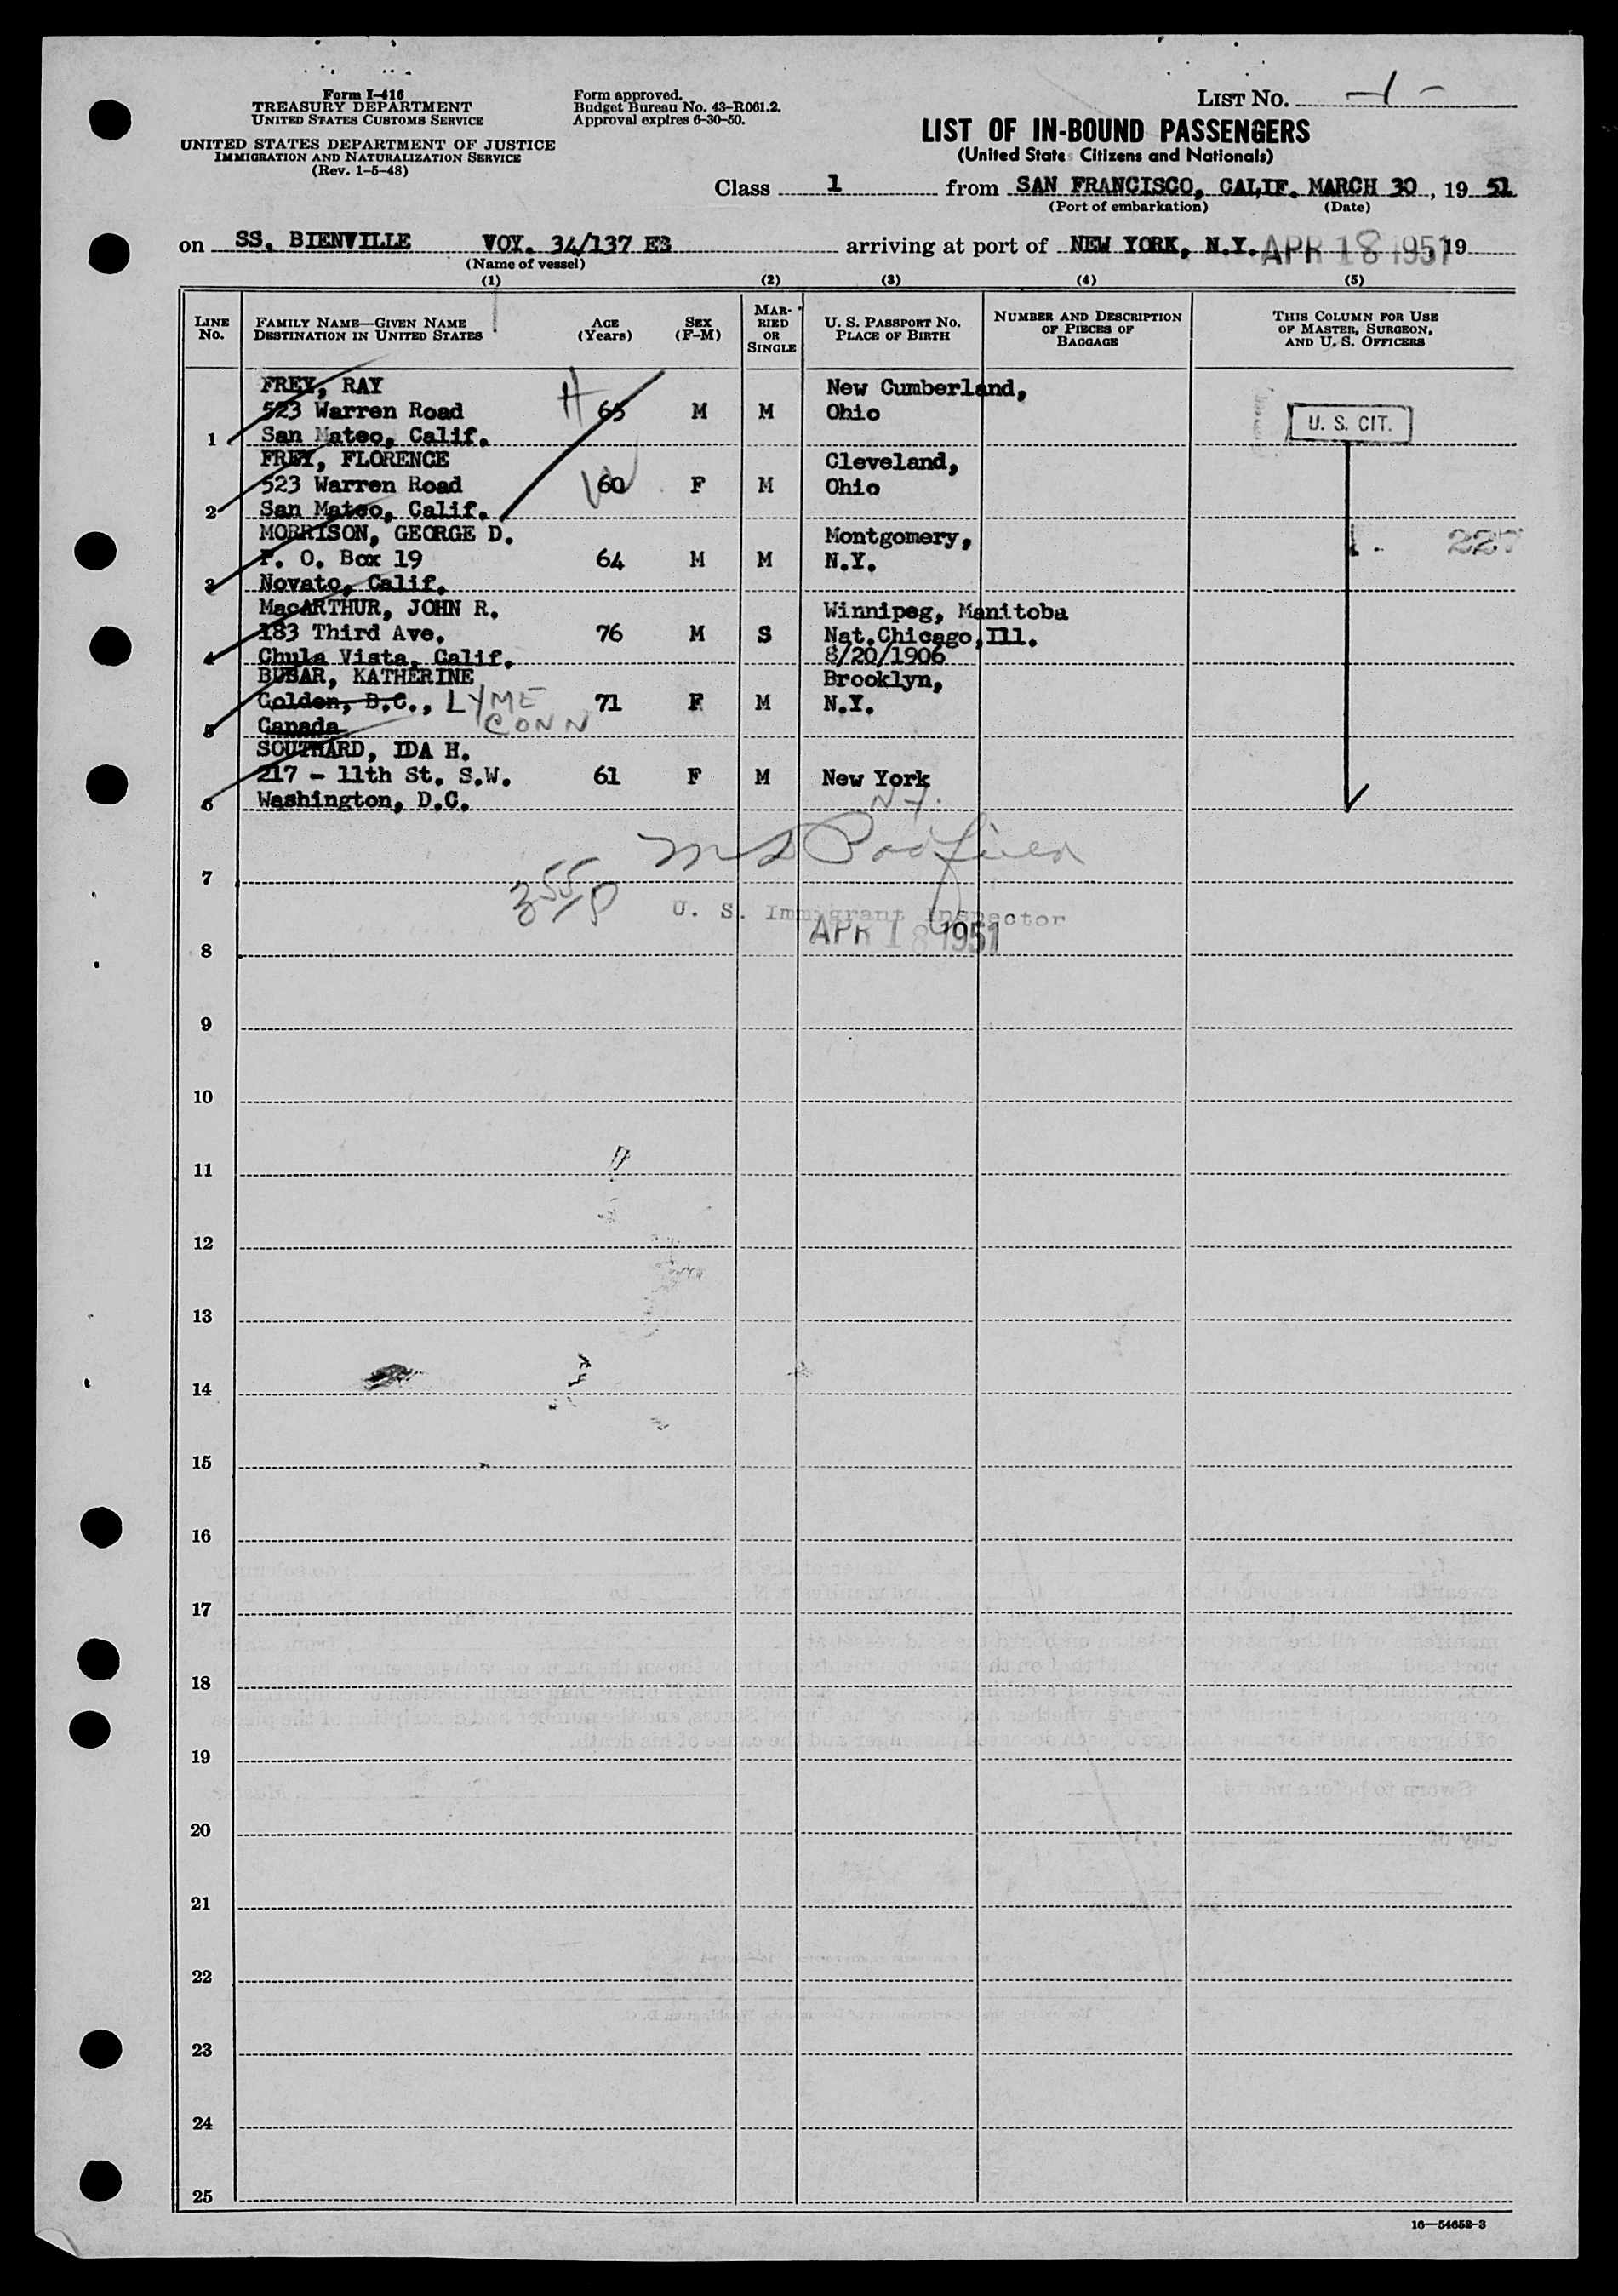 Form I-416
TREASURY DEPARTMENT
UNITED STATES CUSTOMS SERVICE
UNITED STATES DEPARTMENT OF JUSTICE
IMMIGRATION AND NATURALIZATION SERVICE
(Rev. 1-5-48)
Form approved.
Budget Bureau No. 43-R061.2.
Approval expires 6-30-50.
LIST NO. - 1 -
LIST OF IN-BOUND PASSENGERS
(United States Citizens and Nationals)
Class 1 from SAN FRANCISCO, CALIF. MARCH 30, 19 51
(Port of embarkation) (Date)
on SS. BIENVILLE VOY. 34/137 EB arriving at port of NEW YORK, N.Y. APR 18 1951, 19
(Name of vessel)
(1) (2) (3) (4) (5)
LINE NO. FAMILY NAME—GIVEN NAME DESTINATION IN UNITED STATES AGE (Years) SEX (F-M) MARRIED OR SINGLE U. S. PASSPORT NO. PLACE OF BIRTH NUMBER AND DESCRIPTION OF PIECES OF BAGGAGE THIS COLUMN FOR USE OF MASTER, SURGEON, AND U. S. OFFICERS
FREY, RAY New Cumberland,
523 Warren Road H 65 M M Ohio U. S. CIT.
1 San Mateo, Calif.
FREY, FLORENCE Cleveland,
523 Warren Road W 60 F M Ohio
2 San Mateo, Calif.
MORRISON, GEORGE D. Montgomery, 227
P. O. Box 19 64 M M N.Y.
3 Novato, Calif.
MacARTHUR, JOHN R. Winnipeg, Manitoba
183 Third Ave. 76 M S Nat.Chicago,Ill.
4 Chula Vista, Calif. 8/20/1906
BUBAR, KATHERINE Brooklyn,
Golden, B.C., LYME 71 F M N.Y.
5 Canada CONN
SOUTHARD, IDA H.
217 - 11th St. S.W. 61 F M New York
6 Washington, D.C. N.Y.
7
355P U. S. Immigrant Inspector
APR 18 1951
8
9
10
11
12
13
14
15
16
17
18
19
20
21
22
23
24
25
16—54652-3